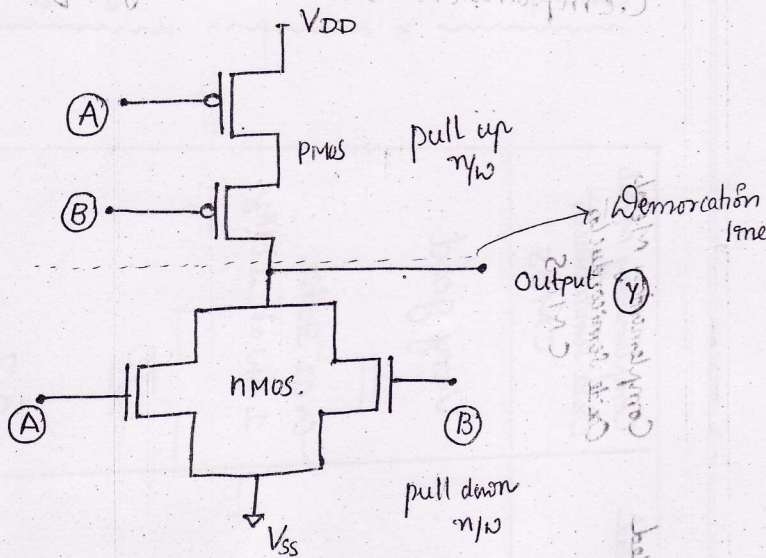 VDD
A
pull up
n/w
PMOS
B
Demorcation
line
Output Y
nMOS.
A
B
pull down
n/w
Vss